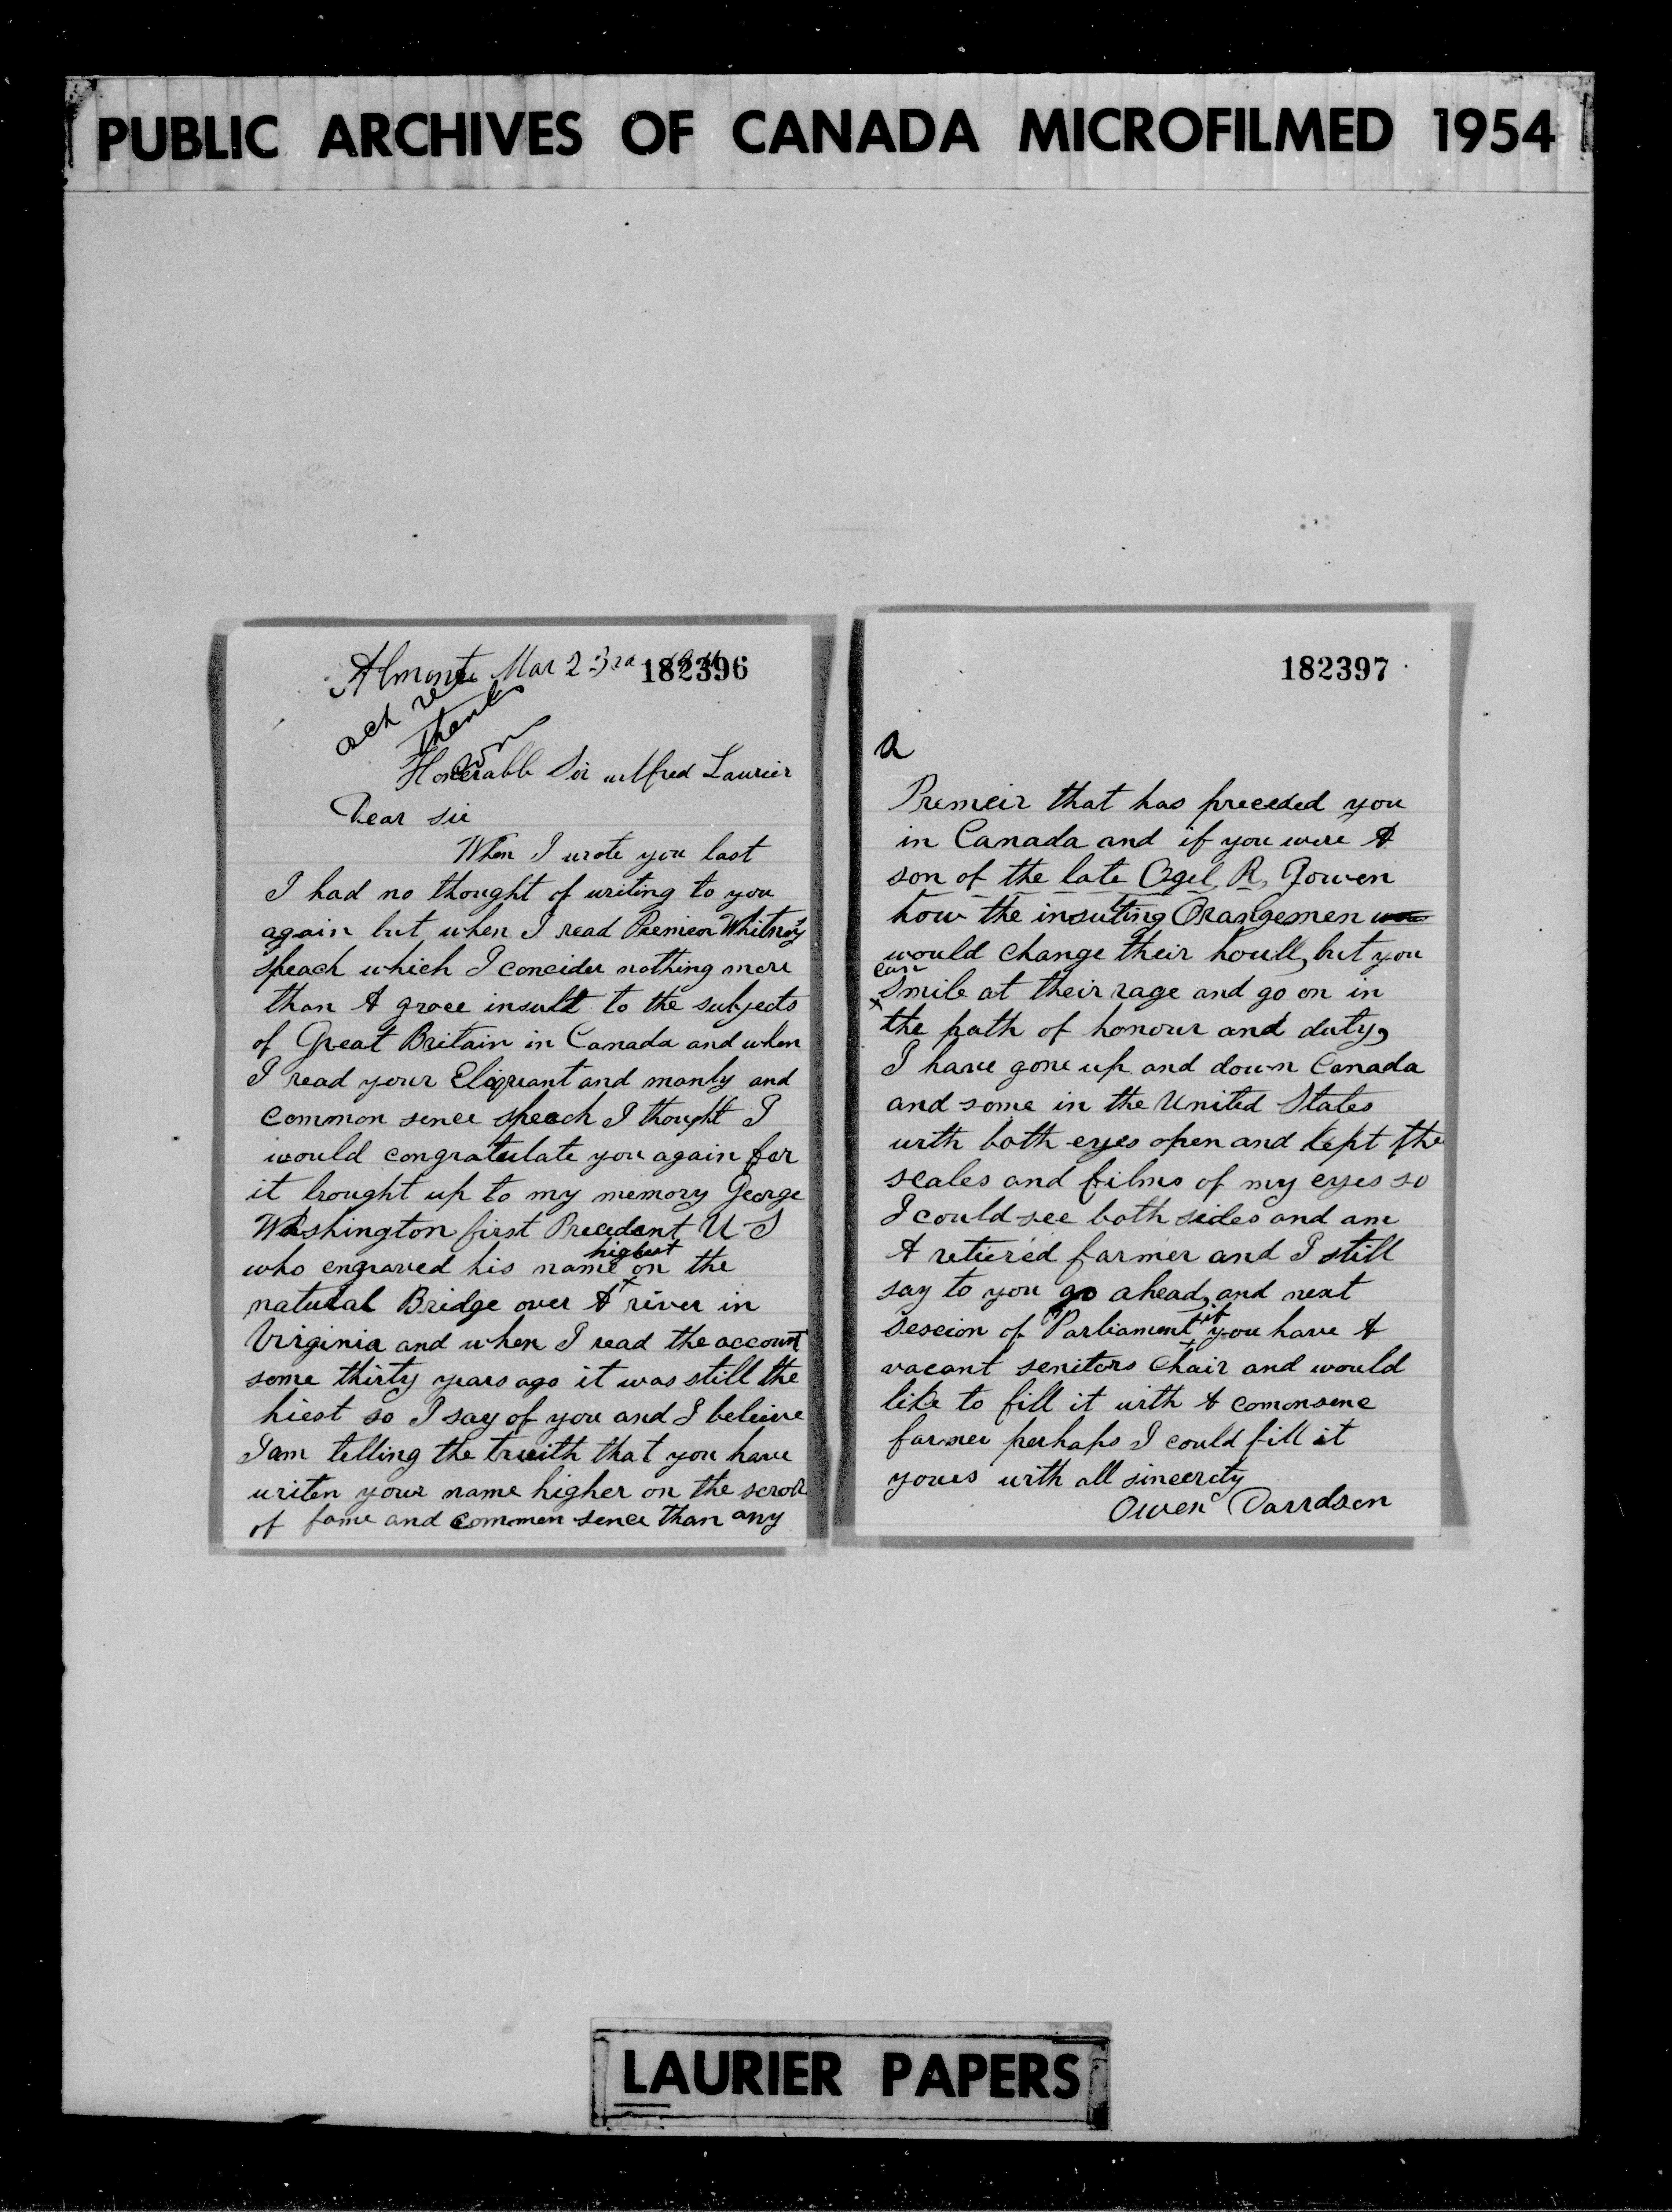 PUBLIC ARCHIVES OF CANADA MICROFILMED 1954
Almonte Mar 23rd
182396
ack
Thanks
Honerabl Sir wilfred Laurier
Dear sir
When I wrote you last
I had no thought of writing to you
again but when I read Premier Whitney
speach which I concider nothing more
than A groce insult to the subjects
of Great Britain in Canada and when
I read your Eloquant and manly and
common sence speach I thought I
would congratulate you again for
it brought up to my memory George
Washington first Precedant U S
who engraved his name highest on the
natural Bridge over A river in
Virginia and when I read the account
some thirty years ago it was still the
hiest so I say of you and I beleive
I am telling the trueith that you have
writen your name higher on the scroll
of fame and common sence than any
182397
2
Premeir that has preceded you
in Canada and if you were A
son of the late Ogel, R, Gowen
how the insulting Orangemen
would change their houll, but you
can
Smile at their rage and go on in
the path of honour and duty,
I have gone up and down Canada
and some in the United States
with both eyes open and kept the
scales and films of my eyes so
I could see both sides and am
A retiered farmer and I still
say to you go ahead, and next
sescion of Parliament if you have A
vacant senitors Chair and would
like to fill it with A comonsene
farmer perhaps I could fill it
yours with all sincerety
Owen Davidson
LAURIER PAPERS